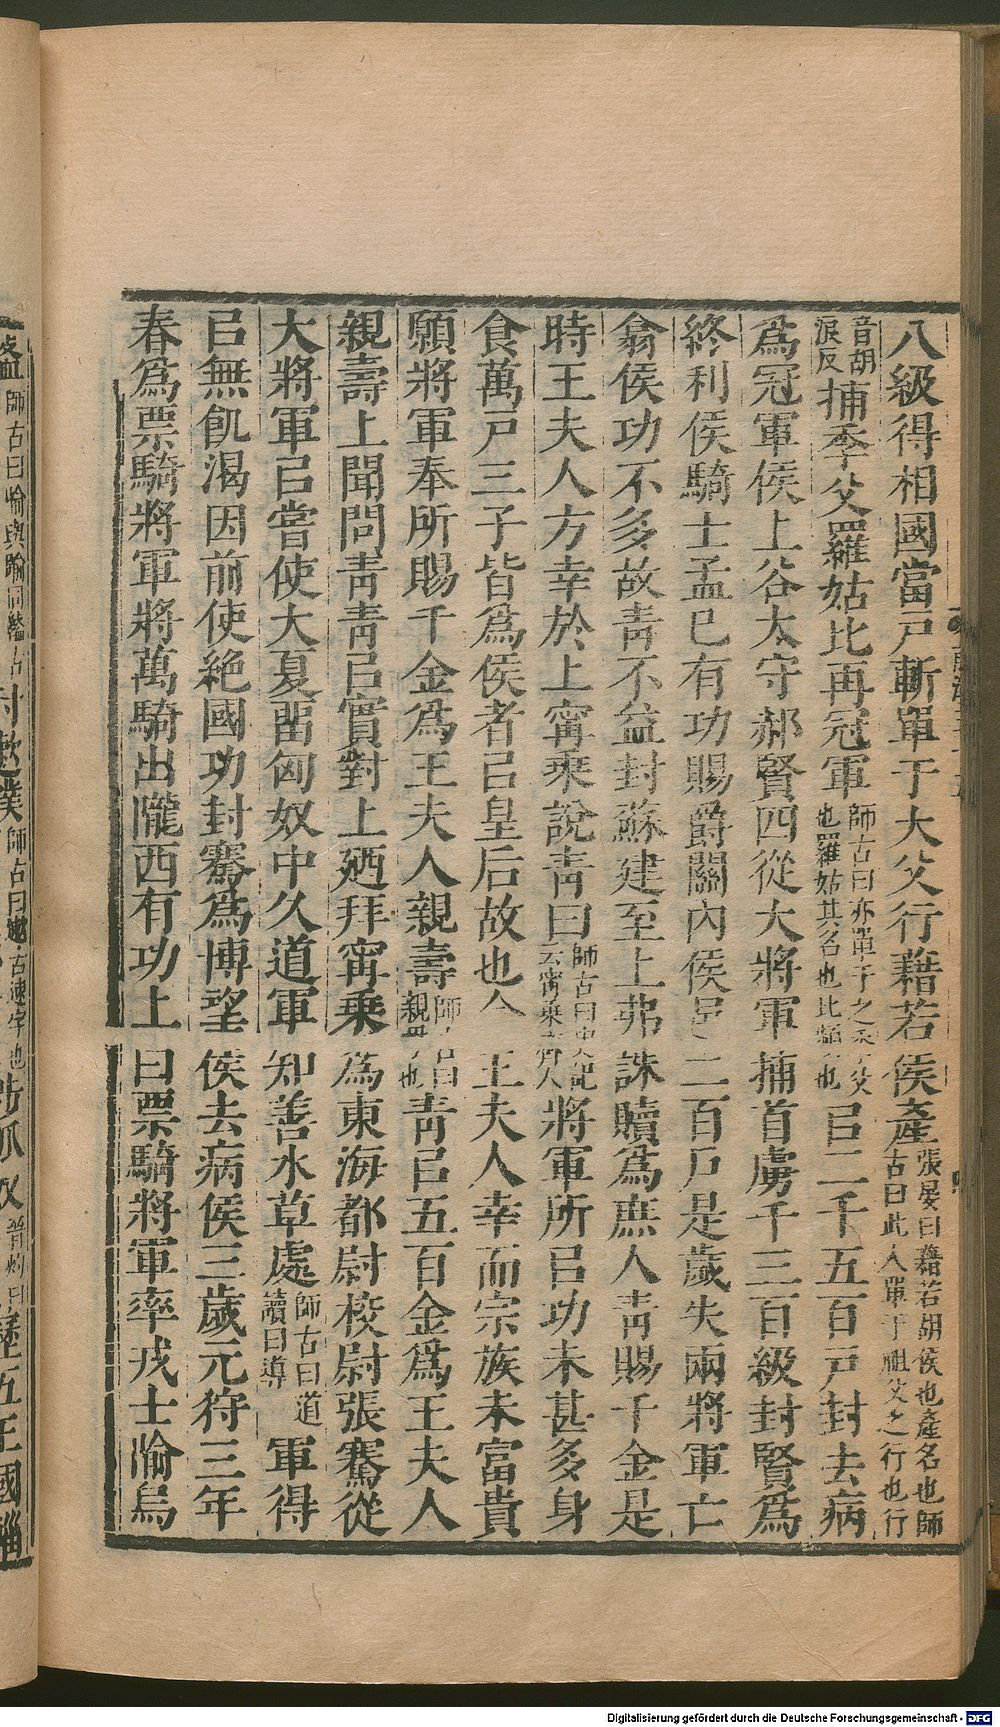 八級得相國當戶斬單于大父行藉若侯產張晏曰藉若胡侯也產名也師古曰此人單于祖父之行也行
音胡浪反捕季父羅姑比再冠軍師古曰亦單于之季父也羅姑其名也比頻也㠯二千五百戶封去病
爲冠軍侯上谷太守郝賢四從大將軍捕首虜千三百級封賢爲
終利侯騎士孟已有功賜爵關內侯邑二百戶是歲失兩將軍亡
翕侯功不多故青不益封蘇建至上弗誅贖爲庶人青賜千金是
時王夫人方幸於上甯乘說青曰師古曰史記云甯乘齊人將軍所㠯功未甚多身
食萬戶三子皆爲侯者㠯皇后故也今王夫人幸而宗族未富貴
願將軍奉所賜千金爲王夫人親壽師古曰親母也青㠯五百金爲王夫人
親壽上聞問青青㠯實對上廼拜甯乘爲東海都尉校尉張騫從
大將軍㠯嘗使大夏畱匈奴中久道軍知善水草處師古曰道讀曰導軍得
㠯無飢渴因前使絕國功封騫爲博望侯去病侯三歲元狩三年
春爲票騎將軍將萬騎出隴西有功上曰票騎將軍率戎士隃烏
盭師古曰隃與踰同盭古
討遬濮師古曰遬古速字也
涉狐奴晉灼曰
歷五王國輜
Digitalisierung gefördert durch die Deutsche Forschungsgemeinschaft - DFG